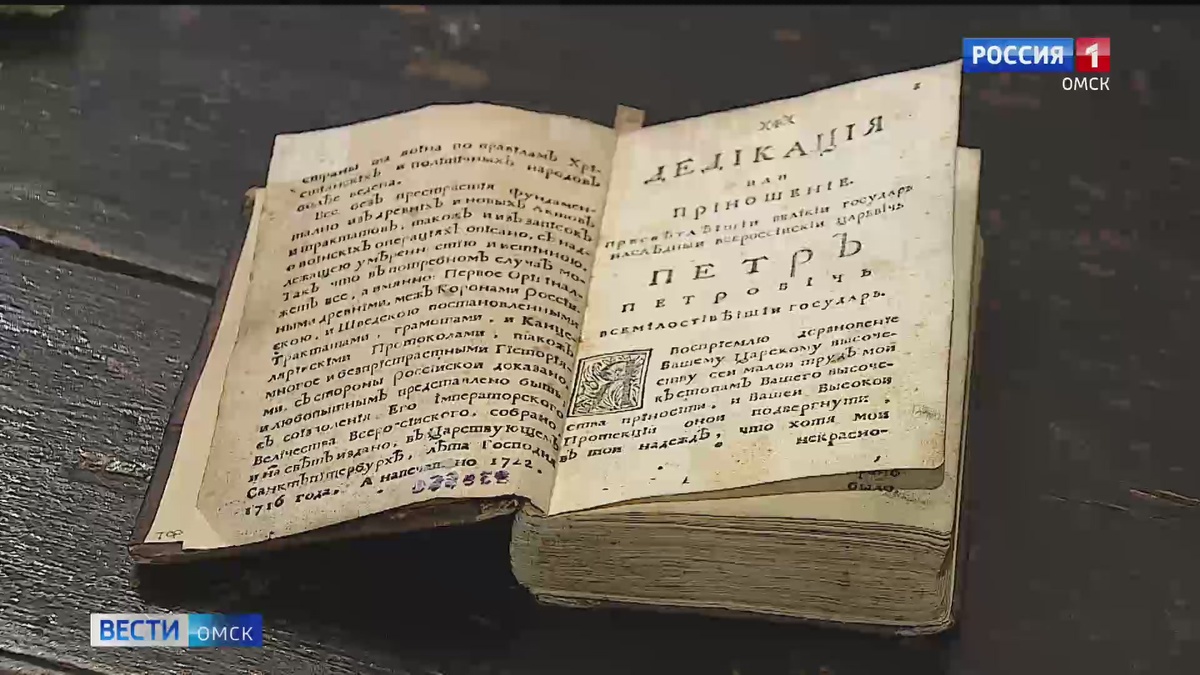 РОССИЯ 1
ОМСК
страны та воїна по правїламъ Хрі-
стїанскїхъ и полїтїчныхъ народовъ
болѣе ведена.
Все безъ престрастїя фундамен-
тално изъ древнїхъ и новыхъ Актовъ
и трактатовъ, такожъ и изъ запїсокъ
о воїнскїхъ операцїяхъ опїсано, съ над-
лежащею умѣренностїю и истїнною.
Такъ что въ потребномъ случаѣ мо-
жетъ все, а имянно: Первое Орїгїнал-
ными древнїми, межъ Коронами Россїи-
скою, и Шведскою постановленными
Трактатами, грамотами, и Канце-
лярїискїми Протоколами, такожъ
многое и безпрїстрастными Гїсторїа-
ми, съ стороны россїискои доказано,
и любопытнымъ представлено быть,
съ соїзволенїя Его Імператорского
Велїчества Всеросїиского, собрано
и на свѣтъ издано, въ Царствующемъ
Санктъпїтербурхѣ, лѣта Господня
1716 года, А напечатано 1722.
ТОР
ДЕДІКАЦІЯ
ИЛИ
ПРІНОШЕНІЕ.
ПРЕСВѢТЛѢІШІИ ВЕЛІКІИ ГОСУДАРЬ
НАСЛѢДНЫИ ВСЕРОССІИСКІИ ЦАРЕВІЧЬ
ПЕТРЪ
ПЕТРОВІЧЬ
ВСЕМІЛОСТІВѢІШІИ ГОСУДАРЬ.
Воспрїемлю дерзновенїе
Вашему Царскому высоче-
ству сеи малои трудъ мои
къ стопамъ Вашего высоче-
ства прїности, и Вашеи Высокои
Протекцїи онои подвергнути,
въ тои надеждѣ, что хотя мои
некрасно-
было
ВЕСТИ ОМСК